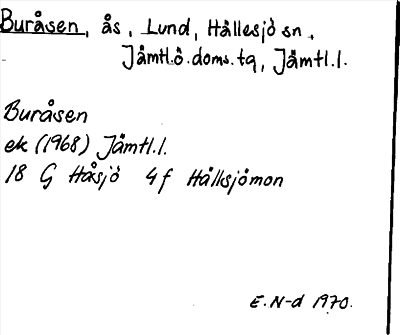 Buråsen, ås, Lund, Hällesjö sn,
Jämtl.ö.doms.tg, Jämtl.l.
Buråsen
ek (1968) Jämtl.l.
18 G Håsjö 4 f Hällsjömon
E.N-d 1970.